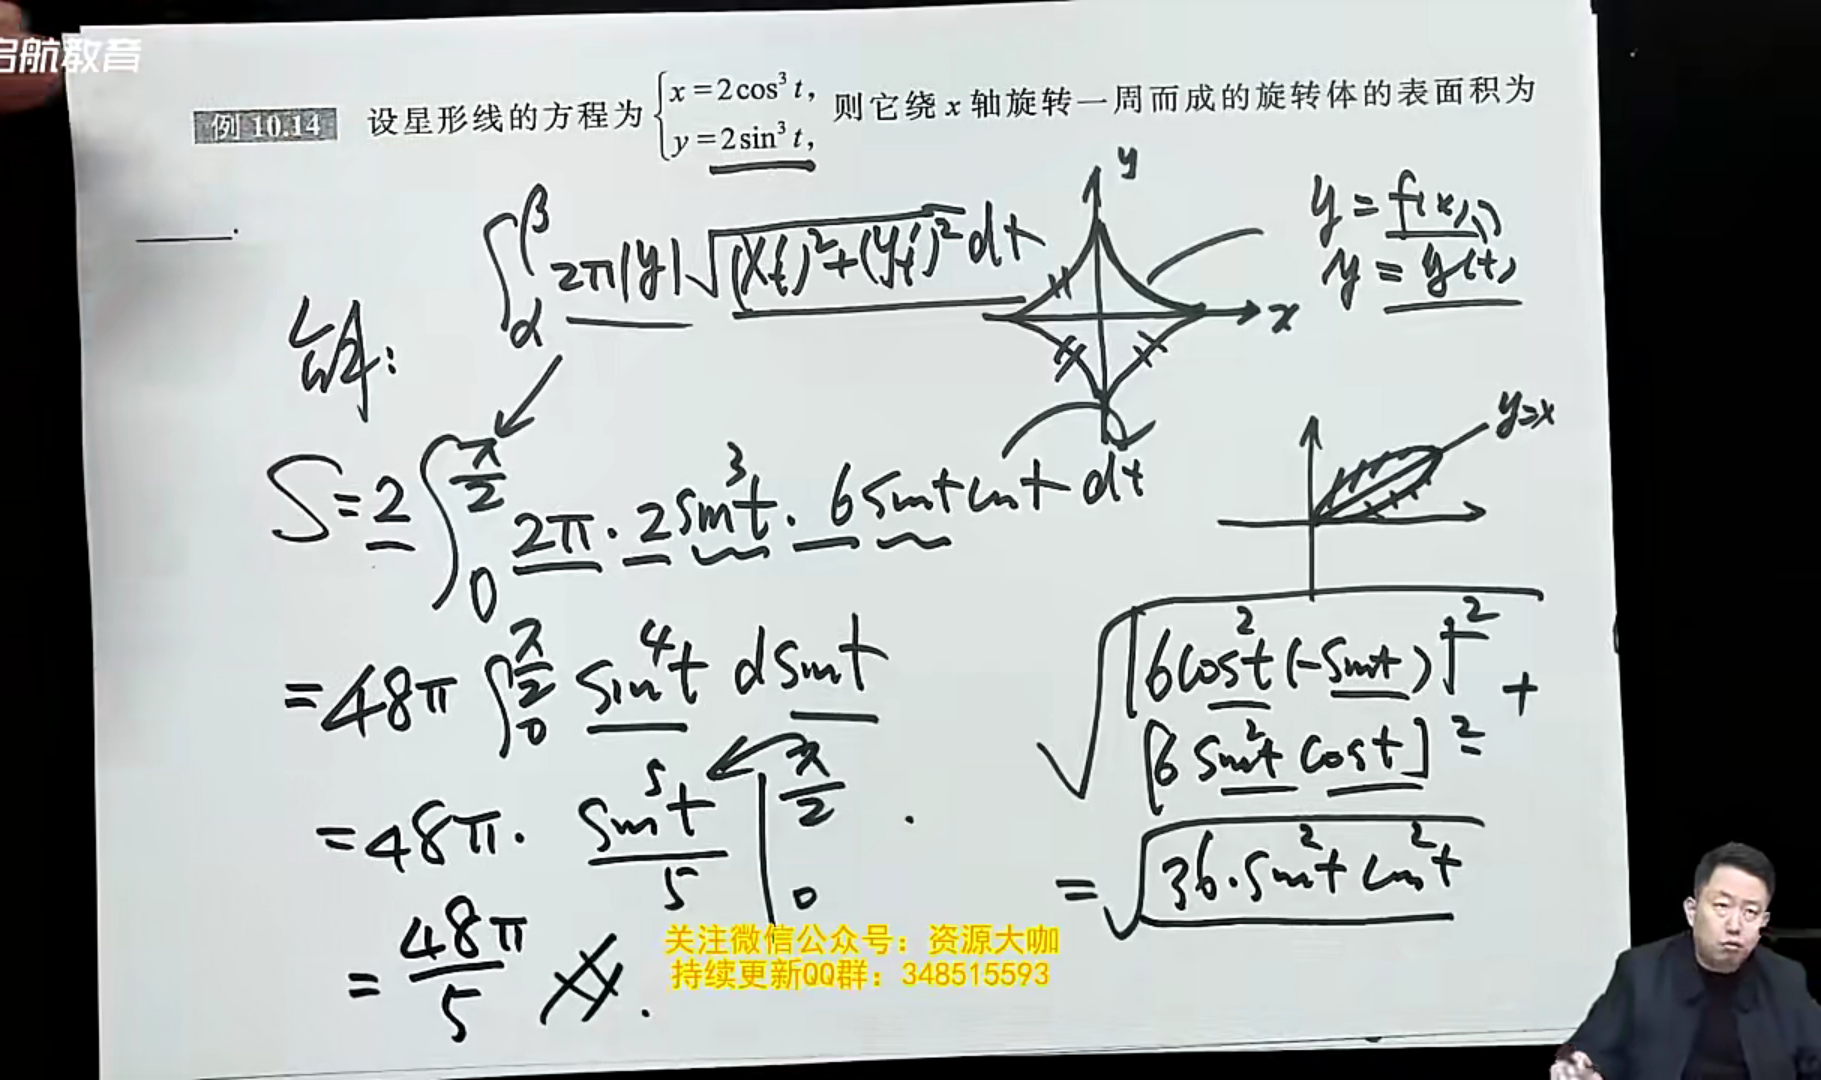 启航教育
例 10.14 设星形线的方程为 { x=2cos³t, y=2sin³t, 则它绕 x 轴旋转一周而成的旋转体的表面积为
______.
∫_α^β 2π|y|√((x't)²+(y't)²) dt
y
x
y = f(x)
y = y(t)
解:
y=x
S = 2∫_0^{π/2} 2π·2sin³t·6sint cost dt
= 48π ∫_0^{π/2} sin⁴t dsint
= 48π· sin⁵t/5 |_0^{π/2}
= 48π/5
√([6cos²t(-sint)]² + [6sin²t cost]²
= √(36·sin²t cos²t
关注微信公众号：资源大咖
持续更新QQ群：348515593